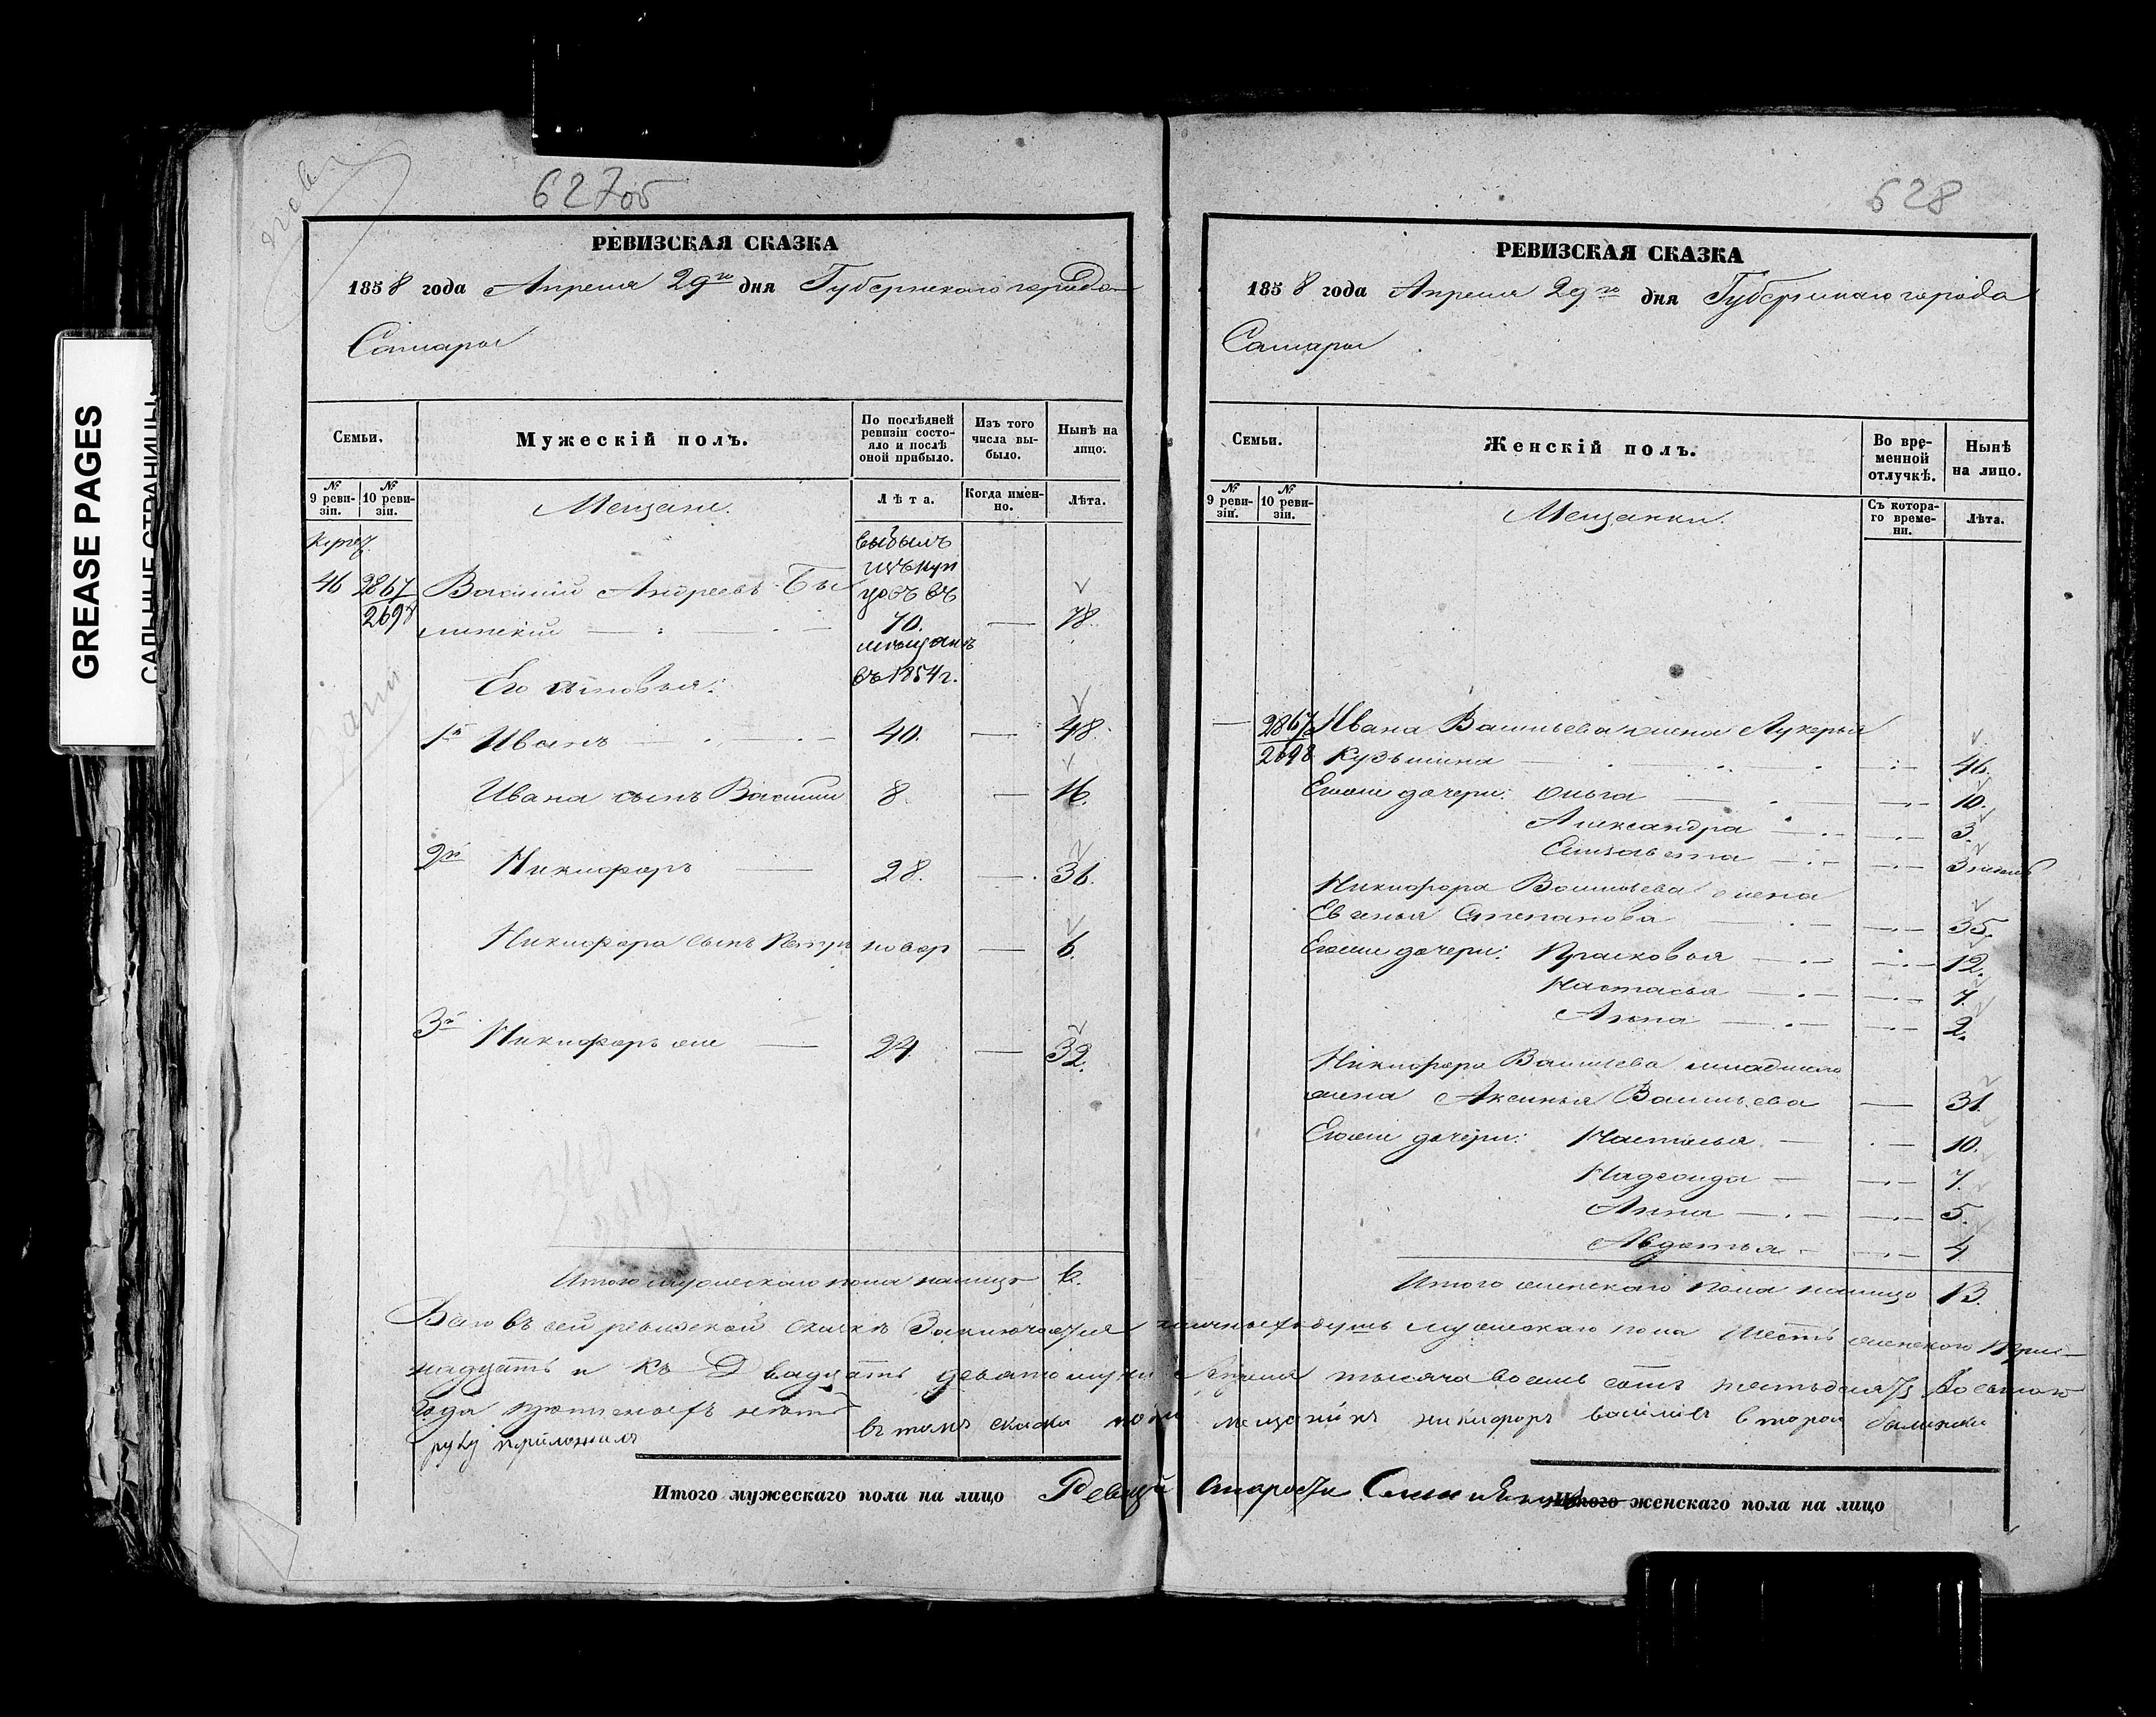 GREASE PAGES
САЛЬНЫЕ СТРАНИЦЫ
627об
РЕВИЗСКАЯ СКАЗКА
1858 года Апреля 29го дня Губернскаго города
Самары
Семьи.
Мужескій полъ.
По послѣдней ревизіи состояло и послѣ оной прибыло.
Изъ того числа выбыло.
Нынѣ на лицо.
№ 9 ревизіи.
№ 10 ревизіи.
Мещане.
Лѣта.
Когда именно.
Лѣта.
46 2867 Василий Андреевъ Бы
2698 линский 70. — 78.
выбылъ
изъ куп
цовъ въ
мещане
въ 1854 г.
Его сыновья:
1й Иванъ — 40. — 48.
Ивана сынъ Василий 8. — 16.
2й Никифоръ — 28. — 36.
Никифора сынъ Петръ новор — 6.
3й Никифоръ же — 24 — 32.
Итого мужескаго пола налицо 6.
628
РЕВИЗСКАЯ СКАЗКА
1858 года Апреля 29го дня Губернскаго города
Самары
Семьи.
Женскій полъ.
Во временной отлучкѣ.
Нынѣ на лицо.
№ 9 ревизіи.
№ 10 ревизіи.
Мещанки.
Съ котораго времени.
Лѣта.
— 2867 Ивана Васильева жена Лукерья
2698 Кузьмина — 46.
Егоже дочери: Ольга — 10.
Александра — 3.
Елизавета — 3
Никифора Васильева жена
Евгенья Степанова — 35.
Егоже дочери: Прасковья — 12.
Настасья — 7.
Анна — 2.
Никифора Васильева младшаго
жена Аксинья Васильева — 31.
Егоже дочери: Настасья — 10.
Надежда — 7.
Анна — 5.
Авдотья — 4
Итого женскаго пола налицо 13.
Всего въ сей ревизской сказкѣ Заключается наличныхъ душъ мужескаго пола Шесть женскаго трина
надцать и къ Двадцать девятому ч. Апреля тысяча восемь сотъ пятьдесятъ Восьмого
года прописныхъ нетъ в томъ скаски мещанинъ никифоръ василивъ второй былински
руку приложилъ
Итого мужескаго пола на лицо
старосты
Итого женскаго пола на лицо